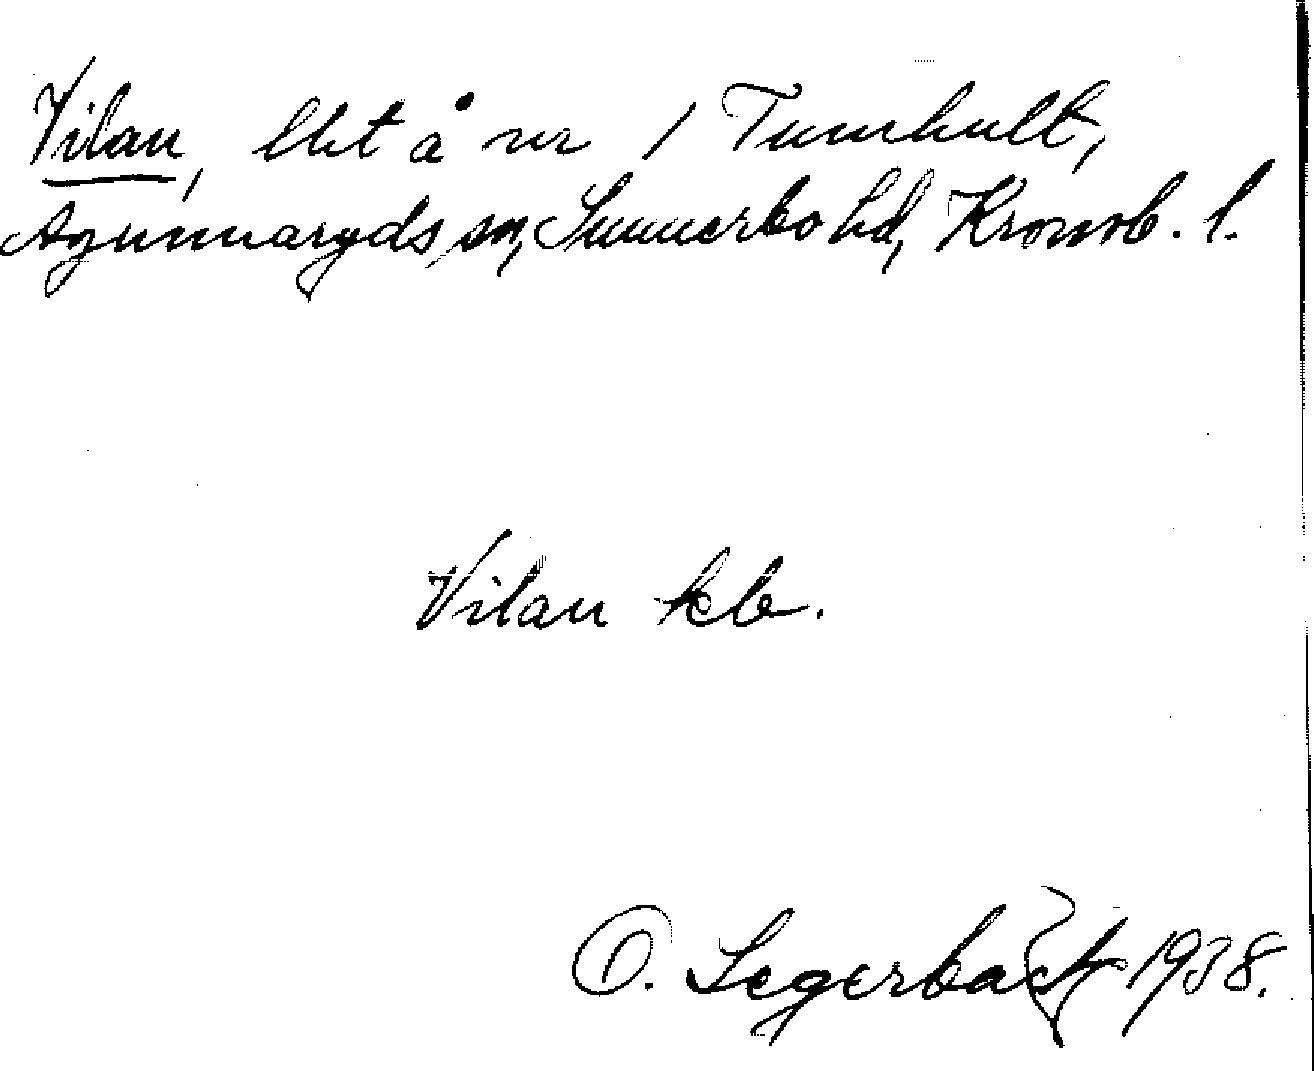 Vilan, lht å nr 1 Tunhult,
Agunnaryds sn, Sunnerbo hd, Kronob. l.
Vilan kb.
O. Segerback 1938.